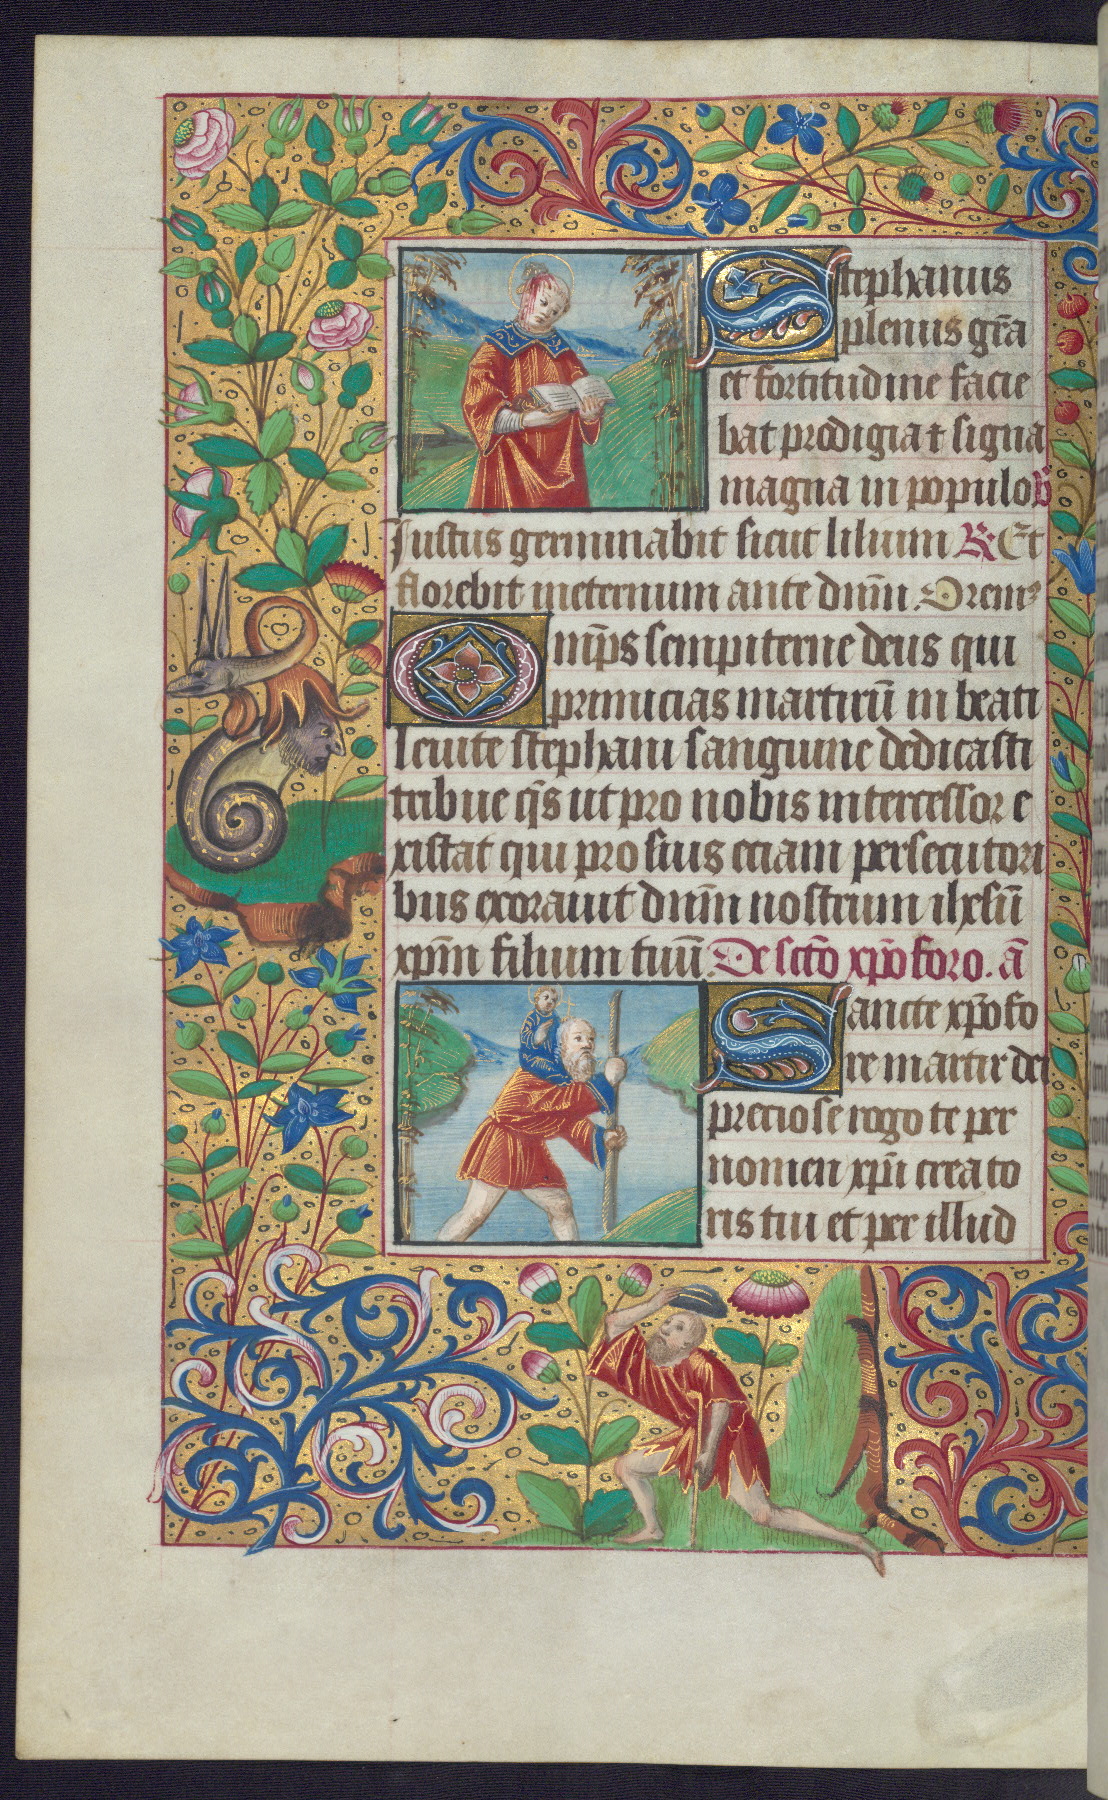 Stephanus
plenus gr̄a
et fortitudine facie
bat prodigia ⁊ signa
magna in populo v̄
Justus germinabit sicut lilium ℟ Et
florebit ineternum ante dnm̄. Oremꝰ
Omp̄s sempiterne deus qui
primicias martirū in beati
leuite stephani sanguine dedicasti
tribue q̄s ut pro nobis intercessor e
xistat qui pro suis eciam persecutori
bus exorauit dnm̄ nostrum ihesū
xpm̄ filium tuū. De scto̅ xp̄oforo. an̄
Sancte xp̄ofo
re martir dei
preciose rogo te per
nomen xpi̅ creato
ris tui et per illud